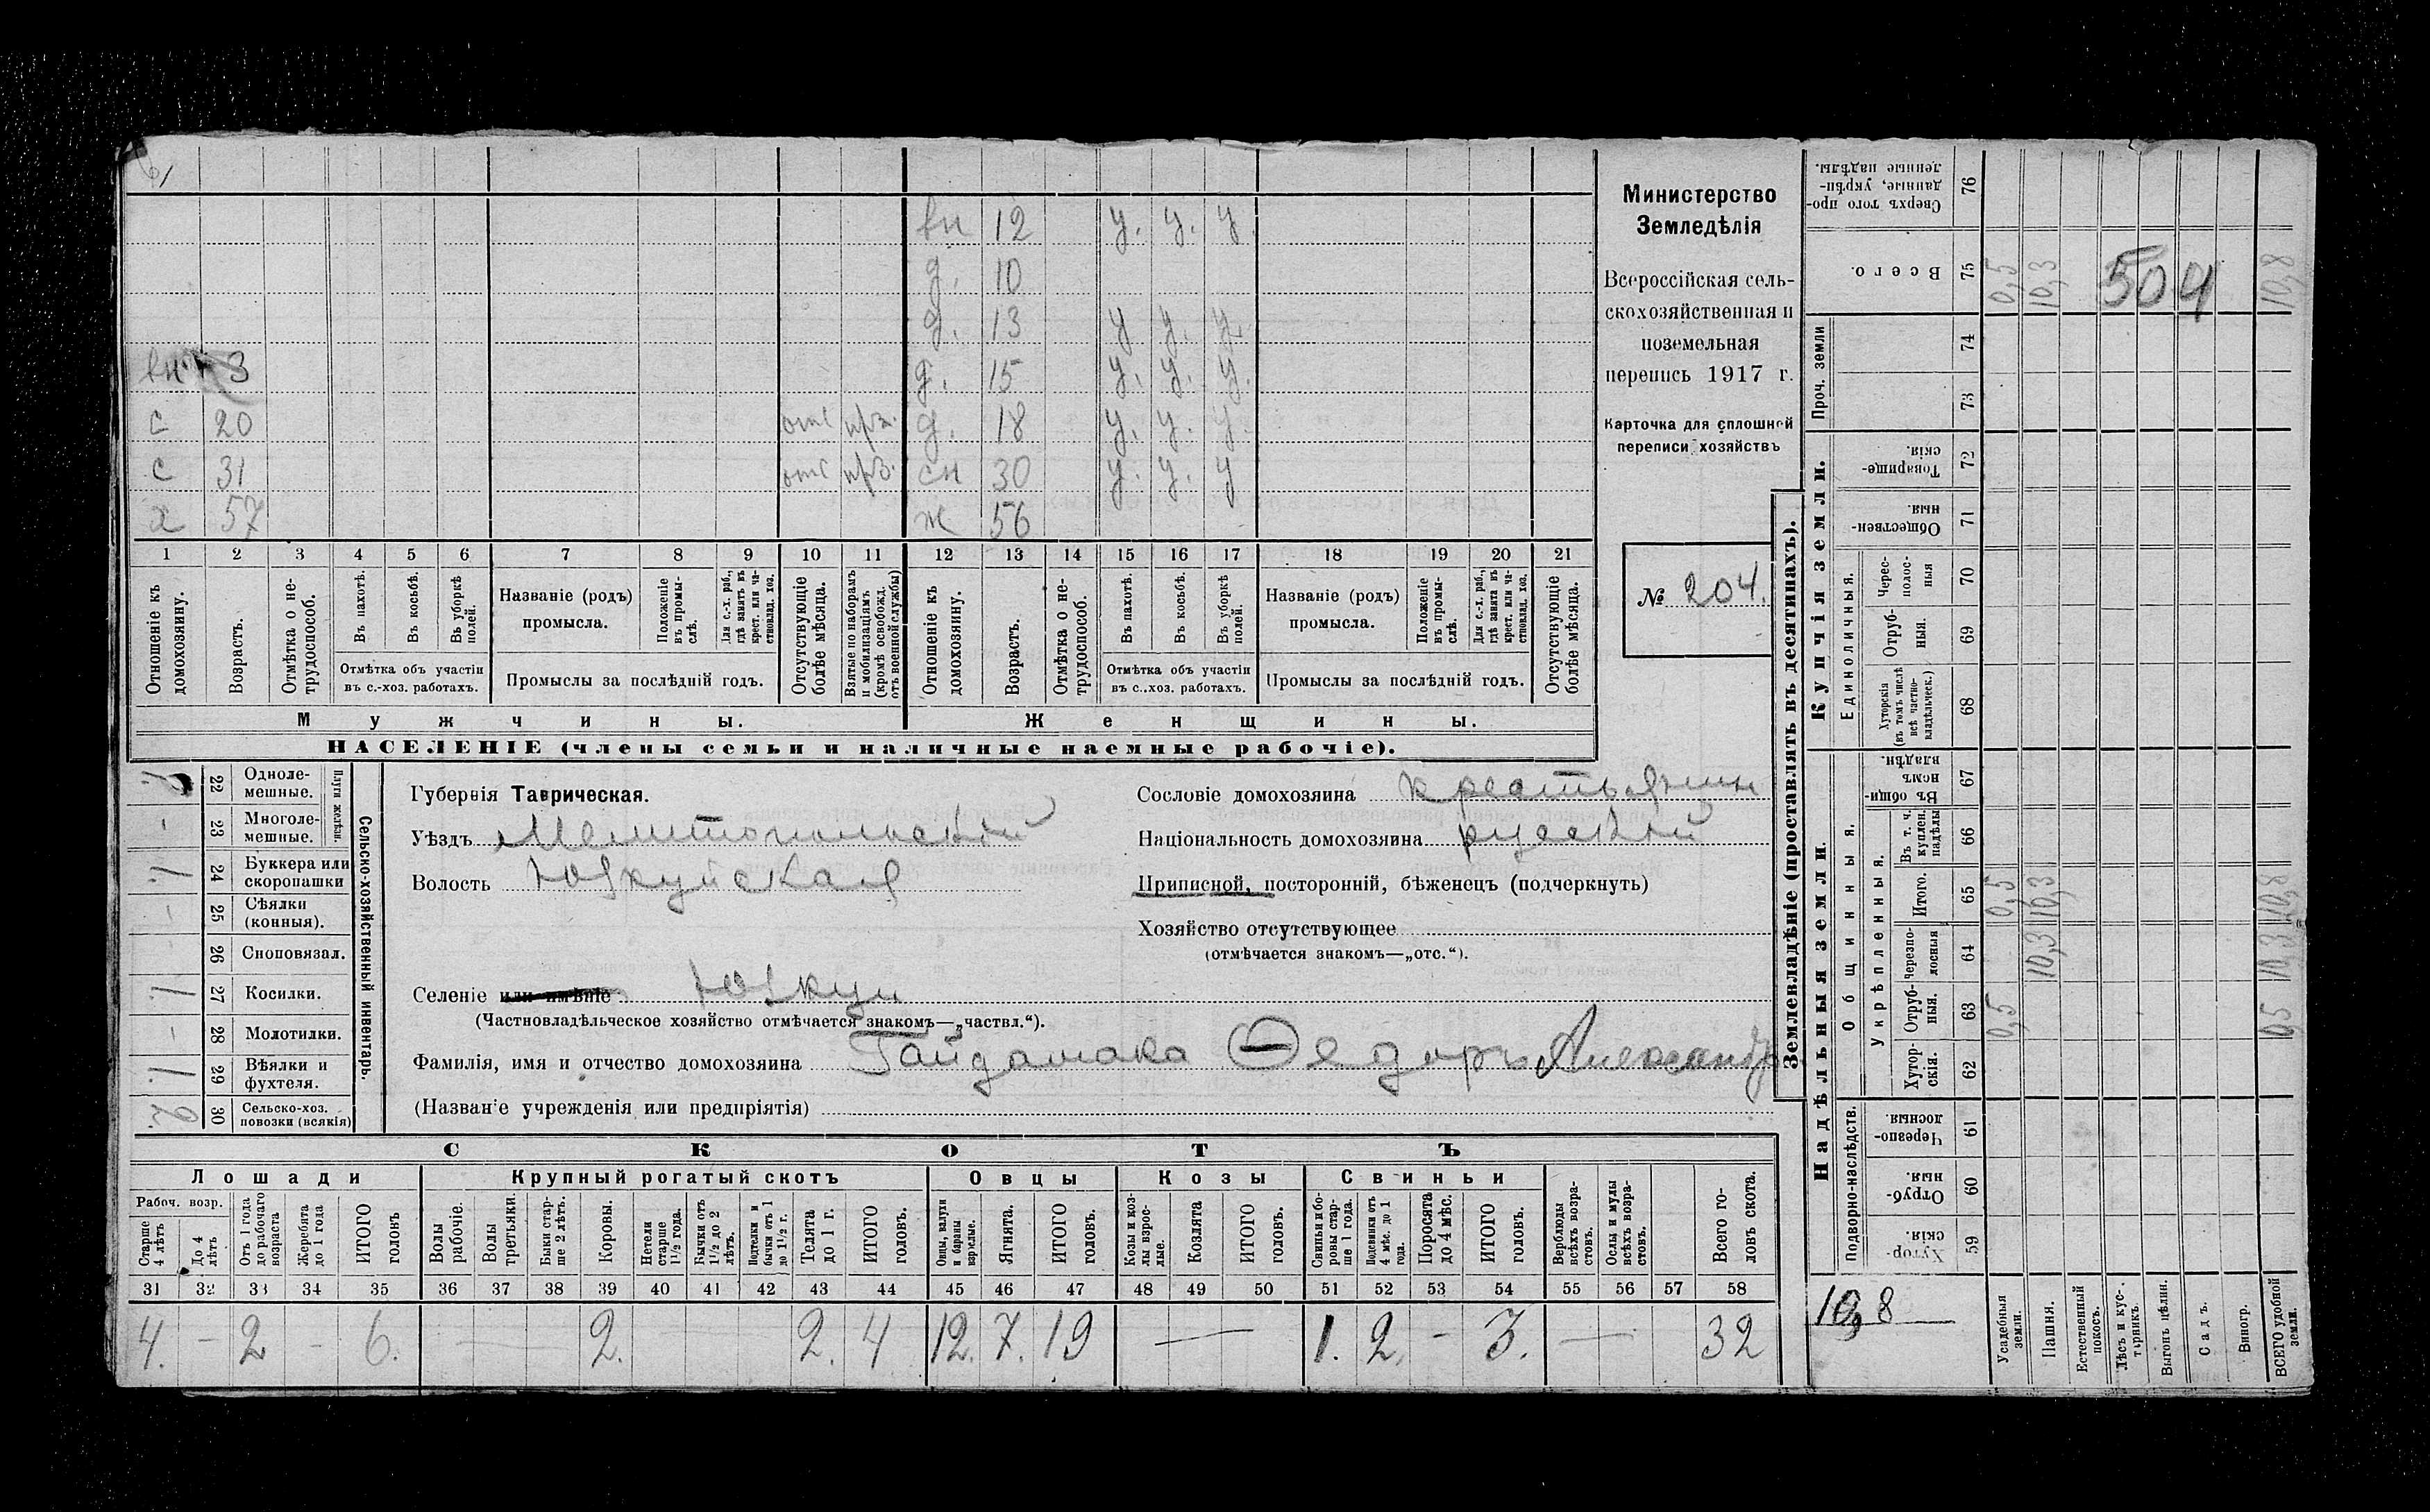 вн 12 у. у. у.
д. 10
д. 13 у у. у.
вн 3 д. 15 у. у. у.
с 20 отс прз. д. 18 у. у. у.
с 31 отс прз. сн 30 у. у. у
х 57 ж 56
1 2 3 4 5 6 7 8 9 10 11 12 13 14 15 16 17 18 19 20 21
Отношеніе къ домохозяину.
Возрастъ.
Отмѣтка о нетрудоспособ.
Въ пахотѣ.
Въ косьбѣ.
Въ уборкѣ полей.
Отмѣтка объ участіи
въ с.-хоз. работахъ.
Названіе (родъ)
промысла.
Положеніе въ промыслѣ.
Для с.-х. раб., гдѣ занятъ въ крест. или частновлад. хоз.
Промыслы за послѣдній годъ.
Отсутствующіе болѣе мѣсяца.
Взятые по наборамъ и мобилизаціямъ (кромѣ освобожд. отъ военной службы)
Отношеніе къ домохозяину.
Возрастъ.
Отмѣтка о нетрудоспособ.
Въ пахотѣ.
Въ косьбѣ.
Въ уборкѣ полей.
Отмѣтка объ участіи
въ с..хоз. работахъ.
Названіе (родъ)
промысла.
Положеніе въ промыслѣ.
Для с.-х. раб., гдѣ занята въ крест. или частновлад. хоз.
Промыслы за послѣдній годъ.
Отсутствующіе болѣе мѣсяца.
Мужчины.
Женщины.
НАСЕЛЕНІЕ (члены семьи и наличные наемные рабочіе).
Министерство
Земледѣлія
Всероссійская сель-
скохозяйственная и
поземельная
перепись 1917 г.
Карточка для сплошной
переписи хозяйствъ
№ 204.
22 Одноле-
мешные.
23 Многоле-
мешные.
Плуги желѣзн.
1 24 Буккера или
скоропашки
25 Сѣялки
(конныя).
26 Сноповязал.
1 27 Косилки.
28 Молотилки.
1 29 Вѣялки и
фухтеля.
2 30 Сельско-хоз.
повозки (всякія)
Сельско-хозяйственный инвентарь.
Губернія Таврическая.
Уѣздъ Мелитопольскій
Волость Юзкуйская
Селеніе или имѣніе Юзкуи
(Частновладѣльческое хозяйство отмѣчается знакомъ—„частвл.“).
Фамилія, имя и отчество домохозяина Гайдамака Ѳедоръ Александр
(Названіе учрежденія или предпріятія)
Сословіе домохозяина крестьянин
Національность домохозяина русскій
Приписной, посторонній, бѣженецъ (подчеркнуть)
Хозяйство отсутствующее
(отмѣчается знакомъ—„отс.“).
СКОТЪ
Лошади Крупный рогатый скотъ Овцы Козы Свиньи
Рабоч. возр.
Старше 4 лѣтъ
До 4 лѣтъ
Отъ 1 года до рабочаго возраста
Жеребята до 1 года
ИТОГО головъ
Волы рабочіе.
Волы третьяки.
Быки старше 2 лѣтъ.
Коровы.
Нетели старше 1½ года.
Бычки отъ 1½ до 2 лѣтъ.
Подтелки и бычки отъ 1 до 1½ г.
Телята до 1 г.
ИТОГО головъ.
Овцы, валухи и бараны взрослые.
Ягнята.
ИТОГО головъ.
Козы и козлы взрослые.
Козлята
ИТОГО головъ.
Свиньи и боровы старше 1 года.
Подсвинки отъ 4 мѣс. до 1 года.
Поросята до 4 мѣс.
ИТОГО головъ.
Верблюды всѣхъ возрастовъ.
Ослы и мулы всѣхъ возрастовъ.
Всего головъ скота.
31 32 33 34 35 36 37 38 39 40 41 42 43 44 45 46 47 48 49 50 51 52 53 54 55 56 57 58
4. - 2 - 6. 2. 2. 4 12. 7. 19 — 1. 2. - 3. — 32
Землевладѣніе (проставлять въ десятинахъ).
Сверхъ того проданные, укрѣпленные надѣлы. 76
Всего. 75 0,5 10,3 10,8
504
Проч. земли 74
73
Купчія земли.
Товарищескія. 72
Общественныя. 71
Единоличныя.
Чересполосныя 70
Отрубныя. 69
Хуторскія (въ томъ числѣ всѣ частновладѣльческ.) 68
Надѣльныя земли.
Общинныя.
Въ общинномъ владѣн. 67
Укрѣпленныя.
Въ т. ч. куплен. надѣлы 66
Итого. 65 0,5 10,3 10,8
Черезполосныя 64 10,3 10,3
Отрубныя. 63 0,5 0,5
Хуторскія. 62
Подворно-наслѣдств.
Черезполосныя 61
Отрубныя. 60
Хуторскія. 59
10,8
Усадебныя земли.
Пашня.
Естественный покосъ.
Лѣсъ и кустарникъ.
Выгонъ цѣлин.
Садъ.
Виногр.
ВСЕГО удобной земли.